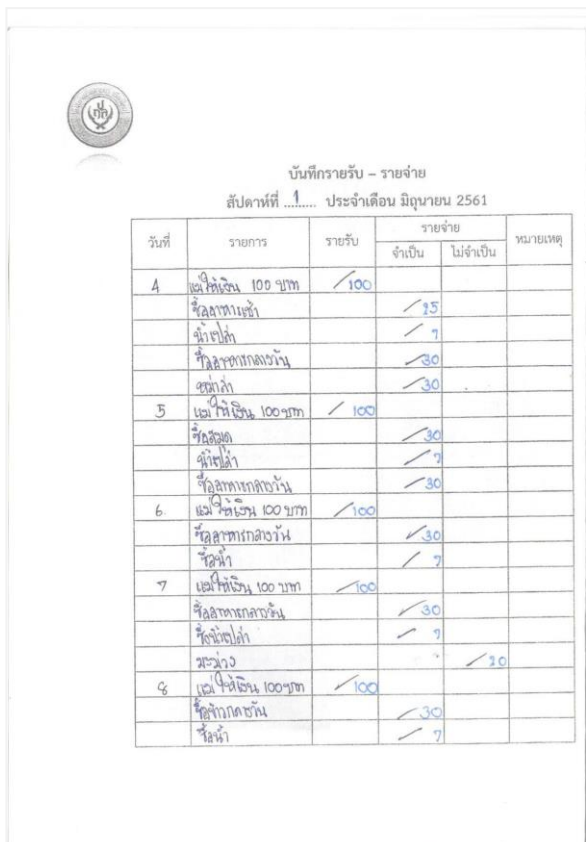 บันทึกรายรับ – รายจ่าย
สัปดาห์ที่ ...1..... ประจำเดือน มิถุนายน 2561
วันที่ รายการ รายรับ รายจ่าย หมายเหตุ
จำเป็น ไม่จำเป็น
4 แม่ให้เงิน 100 บาท 100
ซื้ออาหารเช้า 25
น้ำเปล่า 7
ซื้ออาหารกลางวัน 30
หม่าล่า 30
5 แม่ให้เงิน 100 บาท 100
ซื้อสมุด 30
น้ำเปล่า 7
ซื้ออาหารกลางวัน 30
6 แม่ให้เงิน 100 บาท 100
ซื้ออาหารกลางวัน 30
ซื้อน้ำ 7
7 แม่ให้เงิน 100 บาท 100
ซื้ออาหารกลางวัน 30
ซื้อน้ำเปล่า 7
มะม่วง 20
8 แม่ให้เงิน 100 บาท 100
ซื้อข้าวกลางวัน 30
ซื้อน้ำ 7